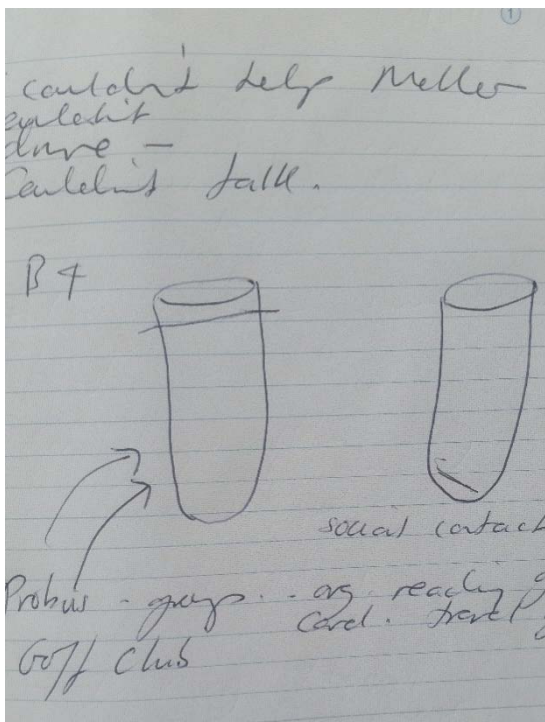 couldn't help
couldn't
drive –
Couldn't talk.
B4
social contact
Probus - groups - org reading
Card. travel
Golf Club